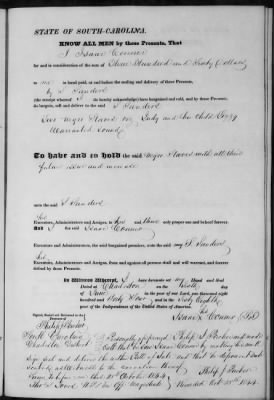 STATE OF SOUTH-CAROLINA.
KNOW ALL MEN by these Presents, That
I Isaac Conner
for and in consideration of the sum of Three Hundred and Sixty Dollars
to me in hand paid, at and before the sealing and delivery of these Presents,
by J Sanders
(the receipt whereof I do hereby acknowledge) have bargained and sold, and by these Presents,
do bargain, sell and deliver to the said J Sanders
Two Negro Slaves viz Judy and her Child
Warranted Sound
To have and to hold the said Negro Slaves with all their
future issue and increase
unto the said J Sanders
his
Executors, Administrators and Assigns, to his and their only proper use and behoof forever.
And I the said Isaac Conner
my
Executors, Administrators, the said bargained premises, unto the said J Sanders
his
Executors, Administrators and Assigns, from and against all persons shall and will warrant, and forever
defend by these Presents.
In Witness Whereof, I have hereunto set my Hand and Seal
Dated at Charleston on the
day of June in the year of our Lord, one thousand eight
hundred and Forty Four and in the Sixty Eighth
year of the Independence of the United States of America.
Signed, Sealed and Delivered in the
Presence of
Isaac Conner (LS)
Philip J Porcher
South Carolina
Charleston District
Personally appeared Philip J Porcher and made
oath that he saw Isaac Conner
sign seal and deliver the within Bill of Sale and that he
to the execution thereof
Sworn to before me this October 1844
Philip J Porcher
Magistrate
Recorded Oct 25th 1844